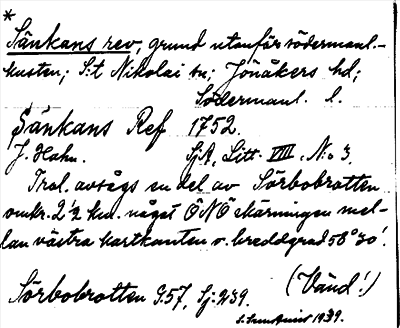 *
Sänkans rev, grund utanför södermanl.-
kusten; S:t Nikolai sn; Jönåkers hd;
Södermanl. l.
Sänkans Ref 1752.
J. Hahn. SjA, Litt. VIII. N:o 3.
Trol. avsågs en del av Sörbobrotten
omkr. 2 1/2 km. något ÖNÖ skärningen mel-
lan västra kartkanten o. breddgrad 58°30'.
(Vänd!)
Sörbobrotten G.57, Sj. 239.
1939.